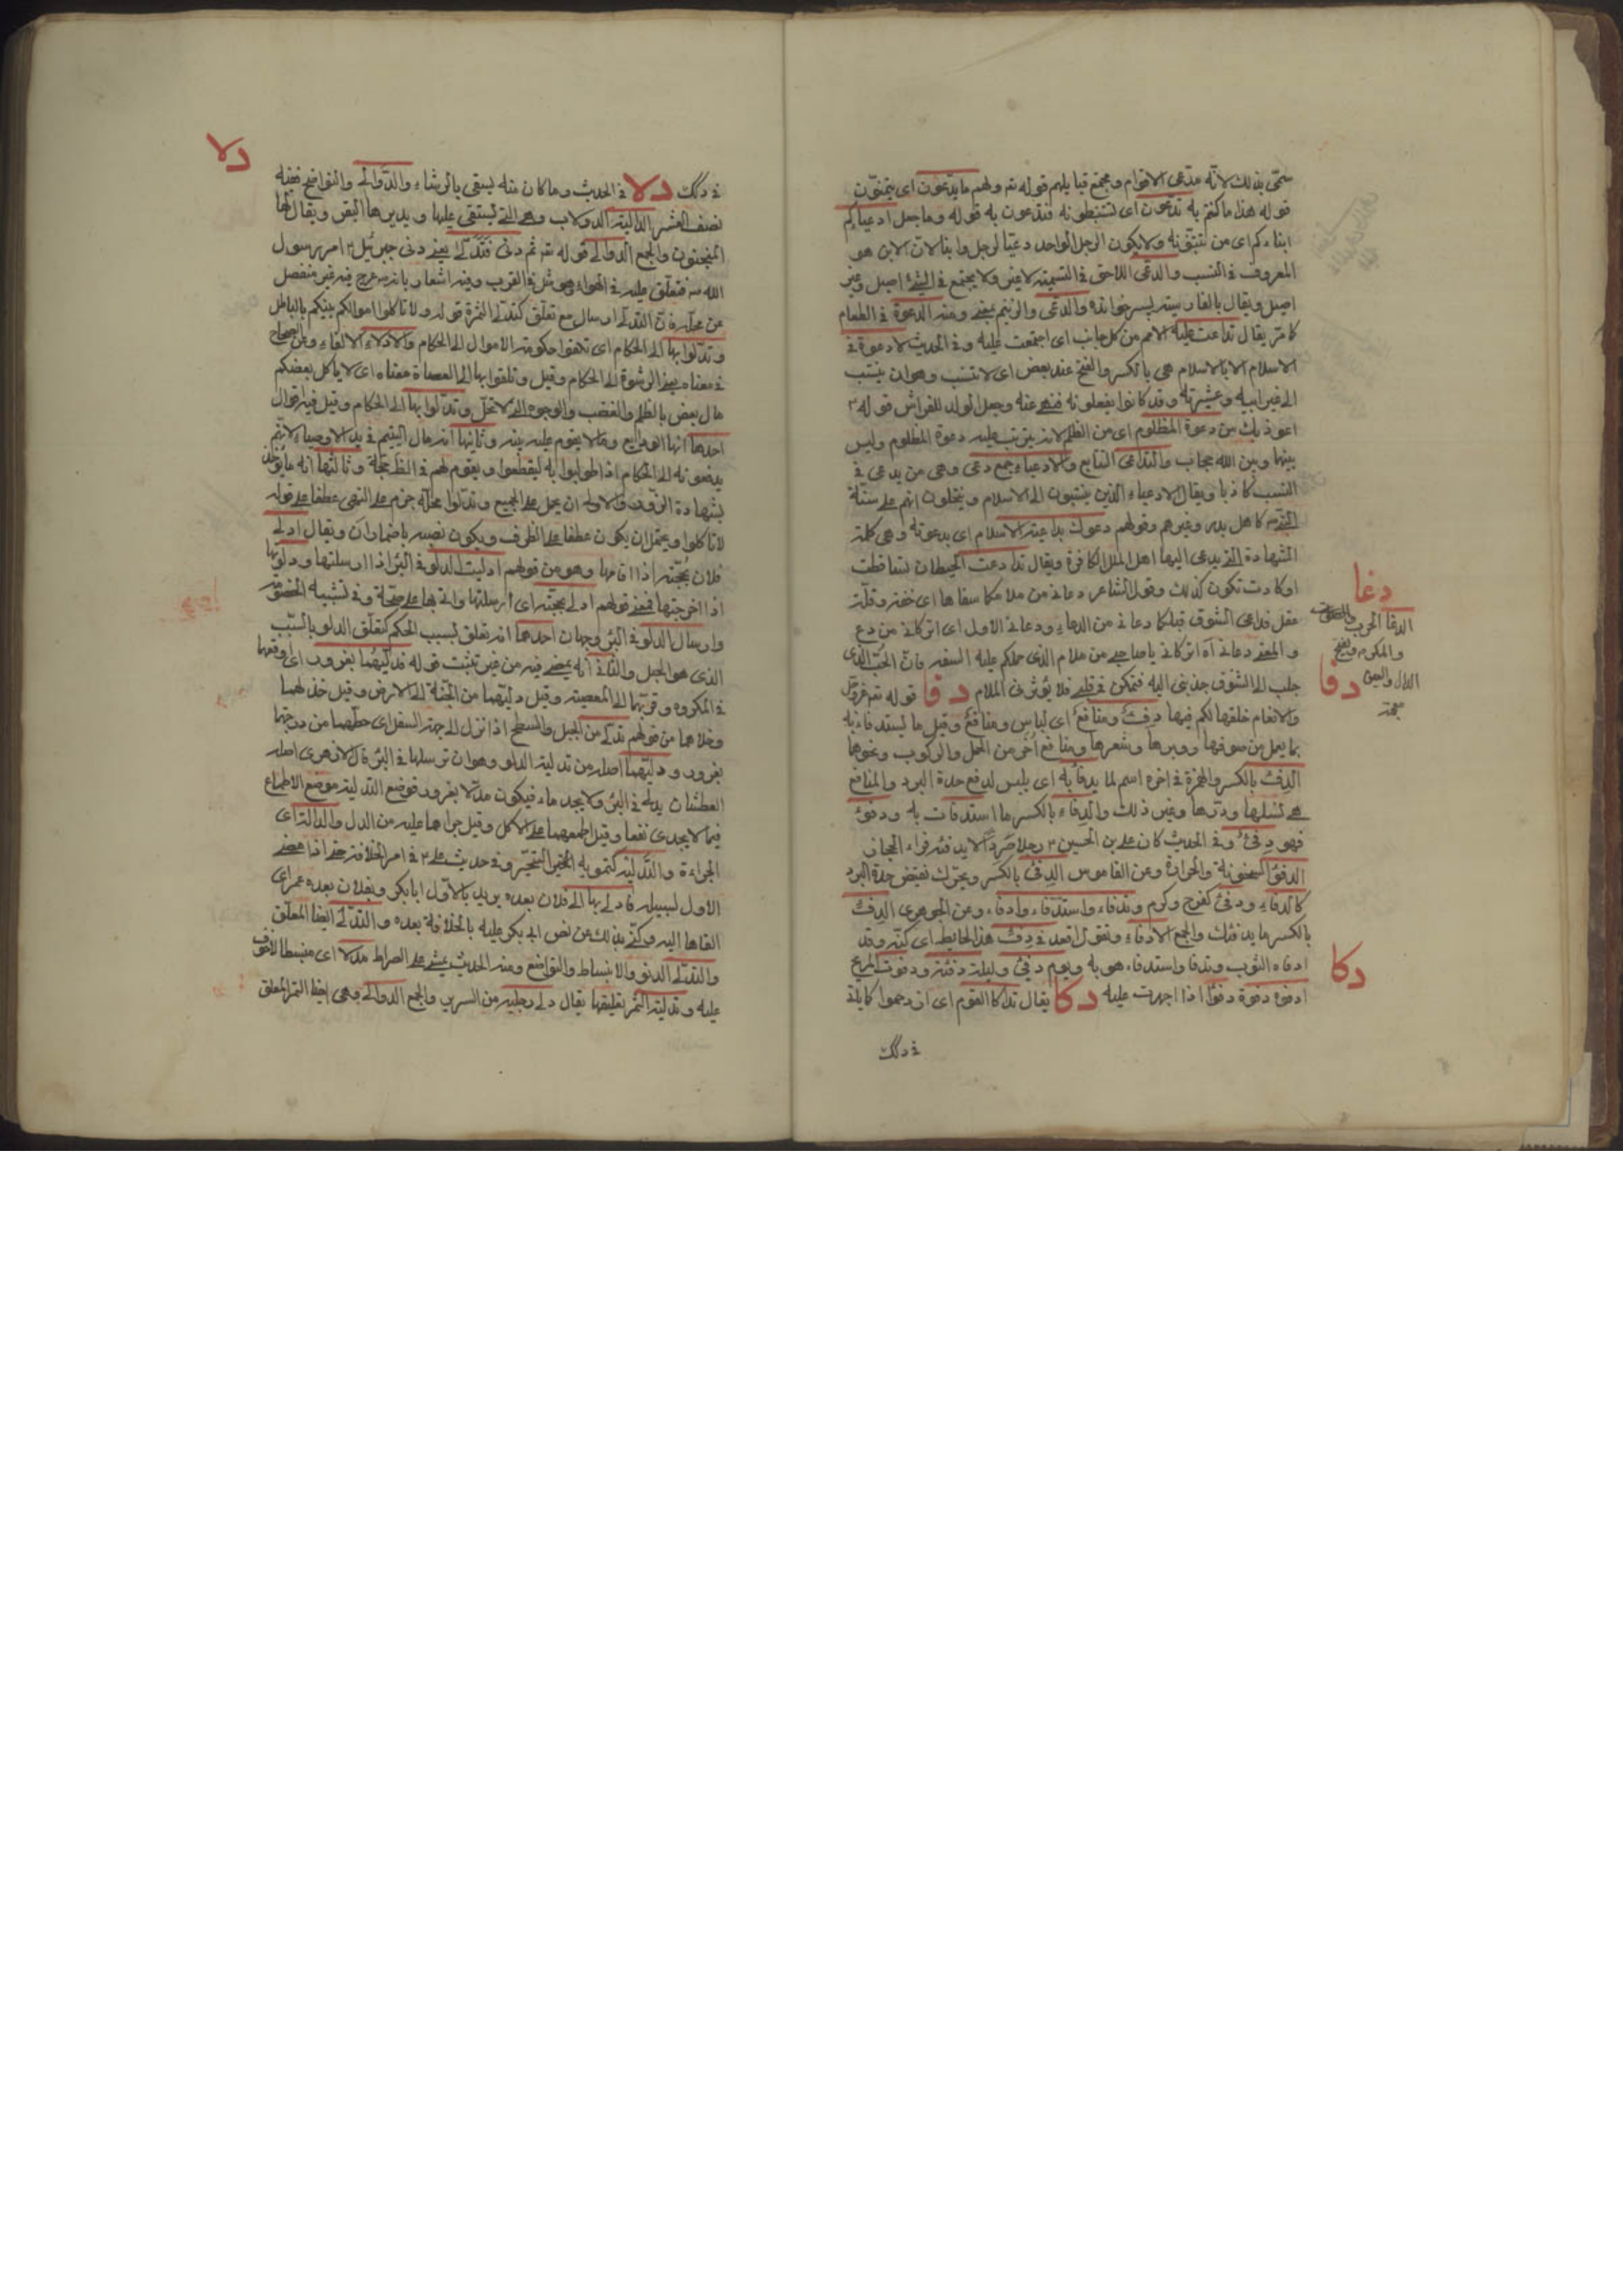 سمّى بذلك لانّه مدّعى الاقوام ومجمع قبايلهم قوله تم ولهم ما يدّعون اى يتمنّون
قوله هذا ما كنتم به تدعون اى تستبطونه فتدعون به قوله وما جعل ادعياءكم
ابناءكم اى من تبنّونه ولا يكون الرجل الواحد دعيّا لرجل وابنا لان الابن هو
المعروف فى النسب والدعى اللاحق فى التسمية لا غير ولا يجتمع فى الشئ اصيل وغير
اصيل ويقال بالفارسية پسرخوانده والدعى والزنيم بمعنى ومنه الدعوة فى الطعام
كما مرّ يقال تداعت عليه الامم من كل جانب اى اجتمعت عليه وفى الحديث لا دعوة فى
الاسلام الا بالاسلام هى بالكسر والفتح عند بعض اى لا تنسب وهو ان ينسب
الى غير ابيه وعشيرته وقد كانوا يفعلونه فنهى عنه وجعل الولد للفراش قوله ع
اعوذ بك من دعوة المظلوم اى من الظلم لانه يترتب عليه دعوة المظلوم وليس
بينها وبين الله حجاب والتداعى التتابع والادعياء جمع دعى وهى من يدعى فى
النسب كاذبا ويقال الادعياء الذين ينتسبون الى الاسلام وينتحلون انهم على سنّة
النبى ص كاهل بدر وغيرهم وقولهم دعوك بداعية الاسلام اى بدعوته وهى كلمة
الشهادة التى يدعى اليها اهل الملل الكافرة ويقال تداعت الحيطان تساقطت
او كادت تكون كذلك وقول الشاعر دعانى من ملامكما سفاها اى خفة وقلّة
عقل فداعى الشوق قبلكما دعانى من الدعاء ودعانى الاول اى اتركانى من دع
والمعنى دعانى اى اتركانى يا صاحبى من ملام الذى حملكم عليه السفه فان الحبّ الذى
جلب الى الشوق جذبنى اليه فتمكن فى قلبى فلا يؤثر فى الملام دفا قوله تم عزوجل
والانعام خلقها لكم فيها دفء ومنافع اى لباس ومنافع وقيل ما يستدفاء به
بما يعمل من صوفها ووبرها وشعرها ومنافع أخر من الحمل والركوب ونحوها
الدفء بالكسر والهمزة فى اخره اسم لما يدفأ به اى يلبس لدفع حدة البرد والمنافع
هى نسلها ودرّها وغير ذلك والدفاء بالكسر ما استدفات به ودفئ
فهو دفئ وفى الحديث كان على بن الحسين ع رجلا صردا لا يدفئه فراء الحجاز
الدفؤ السخونة والحرارة وعن القاموس الدفئ بالكسر ويحرك نقيض حدة البرد
كالدفاء ودفئ كفرح وكرم وتدفاء واستدفاء وادفاء وعن الجوهرى الدفء
بالكسر ما يدفئك والجمع الادفاء وتقول اقعد فى دفء هذا الحايط اى كنّه وقد
ادفاه الثوب وتدفا واستدفاء هو به ويوم دفئ وليلة دفئة ودفوت الجريح
ادفوه دفوة دفوًا اذا اجهزت عليه دكا يقال تداكا القوم اى ازدحموا كما ياتى
فى دكك
دغا
الدغا الحرب
والمكروه وبفتح
الدال والعين
دفا
دكا
فى دكك دلا فى الحديث وما كان منه يسقى بالرشاء والدّوالى والنواضح ففيه
نصف العشر الدالية الدولاب وهى التى يستقى عليها ويديرها البقر ويقال لها
المنجنون والجمع الدوالى قوله تم ثم دنى فتدلّى يعنى دنى جبرئيل ع امر رسول
الله ص فتعلق عليه فى الهواء وهو مثل فى القرب وفيه اشعار بانه عرج فيه غير منفصل
عن محله فان التدلى ارسال مع تعلق كتدلى الثمرة قوله ولا تاكلوا اموالكم بينكم بالباطل
وتدلوا بها الى الحكام اى تلقوا حكومة الاموال الى الحكام والادلاء الالقاء وعن الصحاح
فى معناه يعنى الرشوة الى الحكام وقيل وتلقوا بها الى القضاة معناه اى لا ياكل بعضكم
مال بعض بالظلم والغصب والوجوه التى لا تحل وتدلوا بها الى الحكام وقيل فيه اقوال
احدها انها الودايع وما لا يقوم عليه بينة وثانيها انه مال اليتيم فى يد الاوصياء لانهم
يدفعونه الى الحكام اذا طولبوا به ليقطعوا ويقوم لهم فى الظ حجة وثالثها انه ما يؤخذ
بشهادة الزور والاولى ان يحمل على الجميع وتدلوا محله جزم على النهى عطفا على قوله
لا تاكلوا ويحتمل ان يكون عطفا على الظرف ويكون نصبه باضمار ان ويقال ادلى
فلان بحجّته اذا اقامها وهو من قولهم ادليت الدلو فى البئر اذا ارسلتها ودلوتها
اذا اخرجتها فمعنى قولهم ادلى بحجّته اى ارسلها واتى بها على صحّة وفى تشبيه الخصومة
وارسال الدلو فى البئر وجهان احدهما انه تعلق بسبب الحكم كتعلق الدلو بالسبب
الذى هو الحبل والثانى انه يمضى فيه من غير تثبت قوله فدليهما بغرور اى اوقعهما
فى المكروه وقربهما الى المعصية وقيل دليهما من الجنّة الى الارض وقيل خذلهما
وخلاهما من قولهم تدلى من الجبل والسطح اذا نزل الى جهة السفل اى حطهما من درجتهما
بغرور ودليهما اصله من تدلية الدلو وهو ان ترسلها فى البئر قال الازهرى اصله
العطشان يدلى فى البئر ولا يجد ماء فيكون مدلا بغرور فوضع التدلية موضع الاطماع
فيما لا يجدى نفعا وقيل اطمعهما على الاكل وقيل جراهما عليه من الدل والدالة اى
الجراءة والتدلية كتمويه وفى حديث على ع فى امر الخلافة حتى اذا مضى
الاول لسبيله فادلى بها الى فلان بعده يريد بالاول ابا بكر وبفلان بعده عمر اى
القاها اليه وكنى بذلك عن نص ابى بكر عليه بالخلافة بعده والتدلى ايضا المعلق
والتدلى الدنو والانبساط والتواضع ومنه الحديث يمشى على الصراط مدلا اى منبسطا لا خوف
عليه وتدلية الثمر تعليقها يقال دلى رجليه من السرير والجمع الدوالى وهى ايضا التمر المعلق
دلا